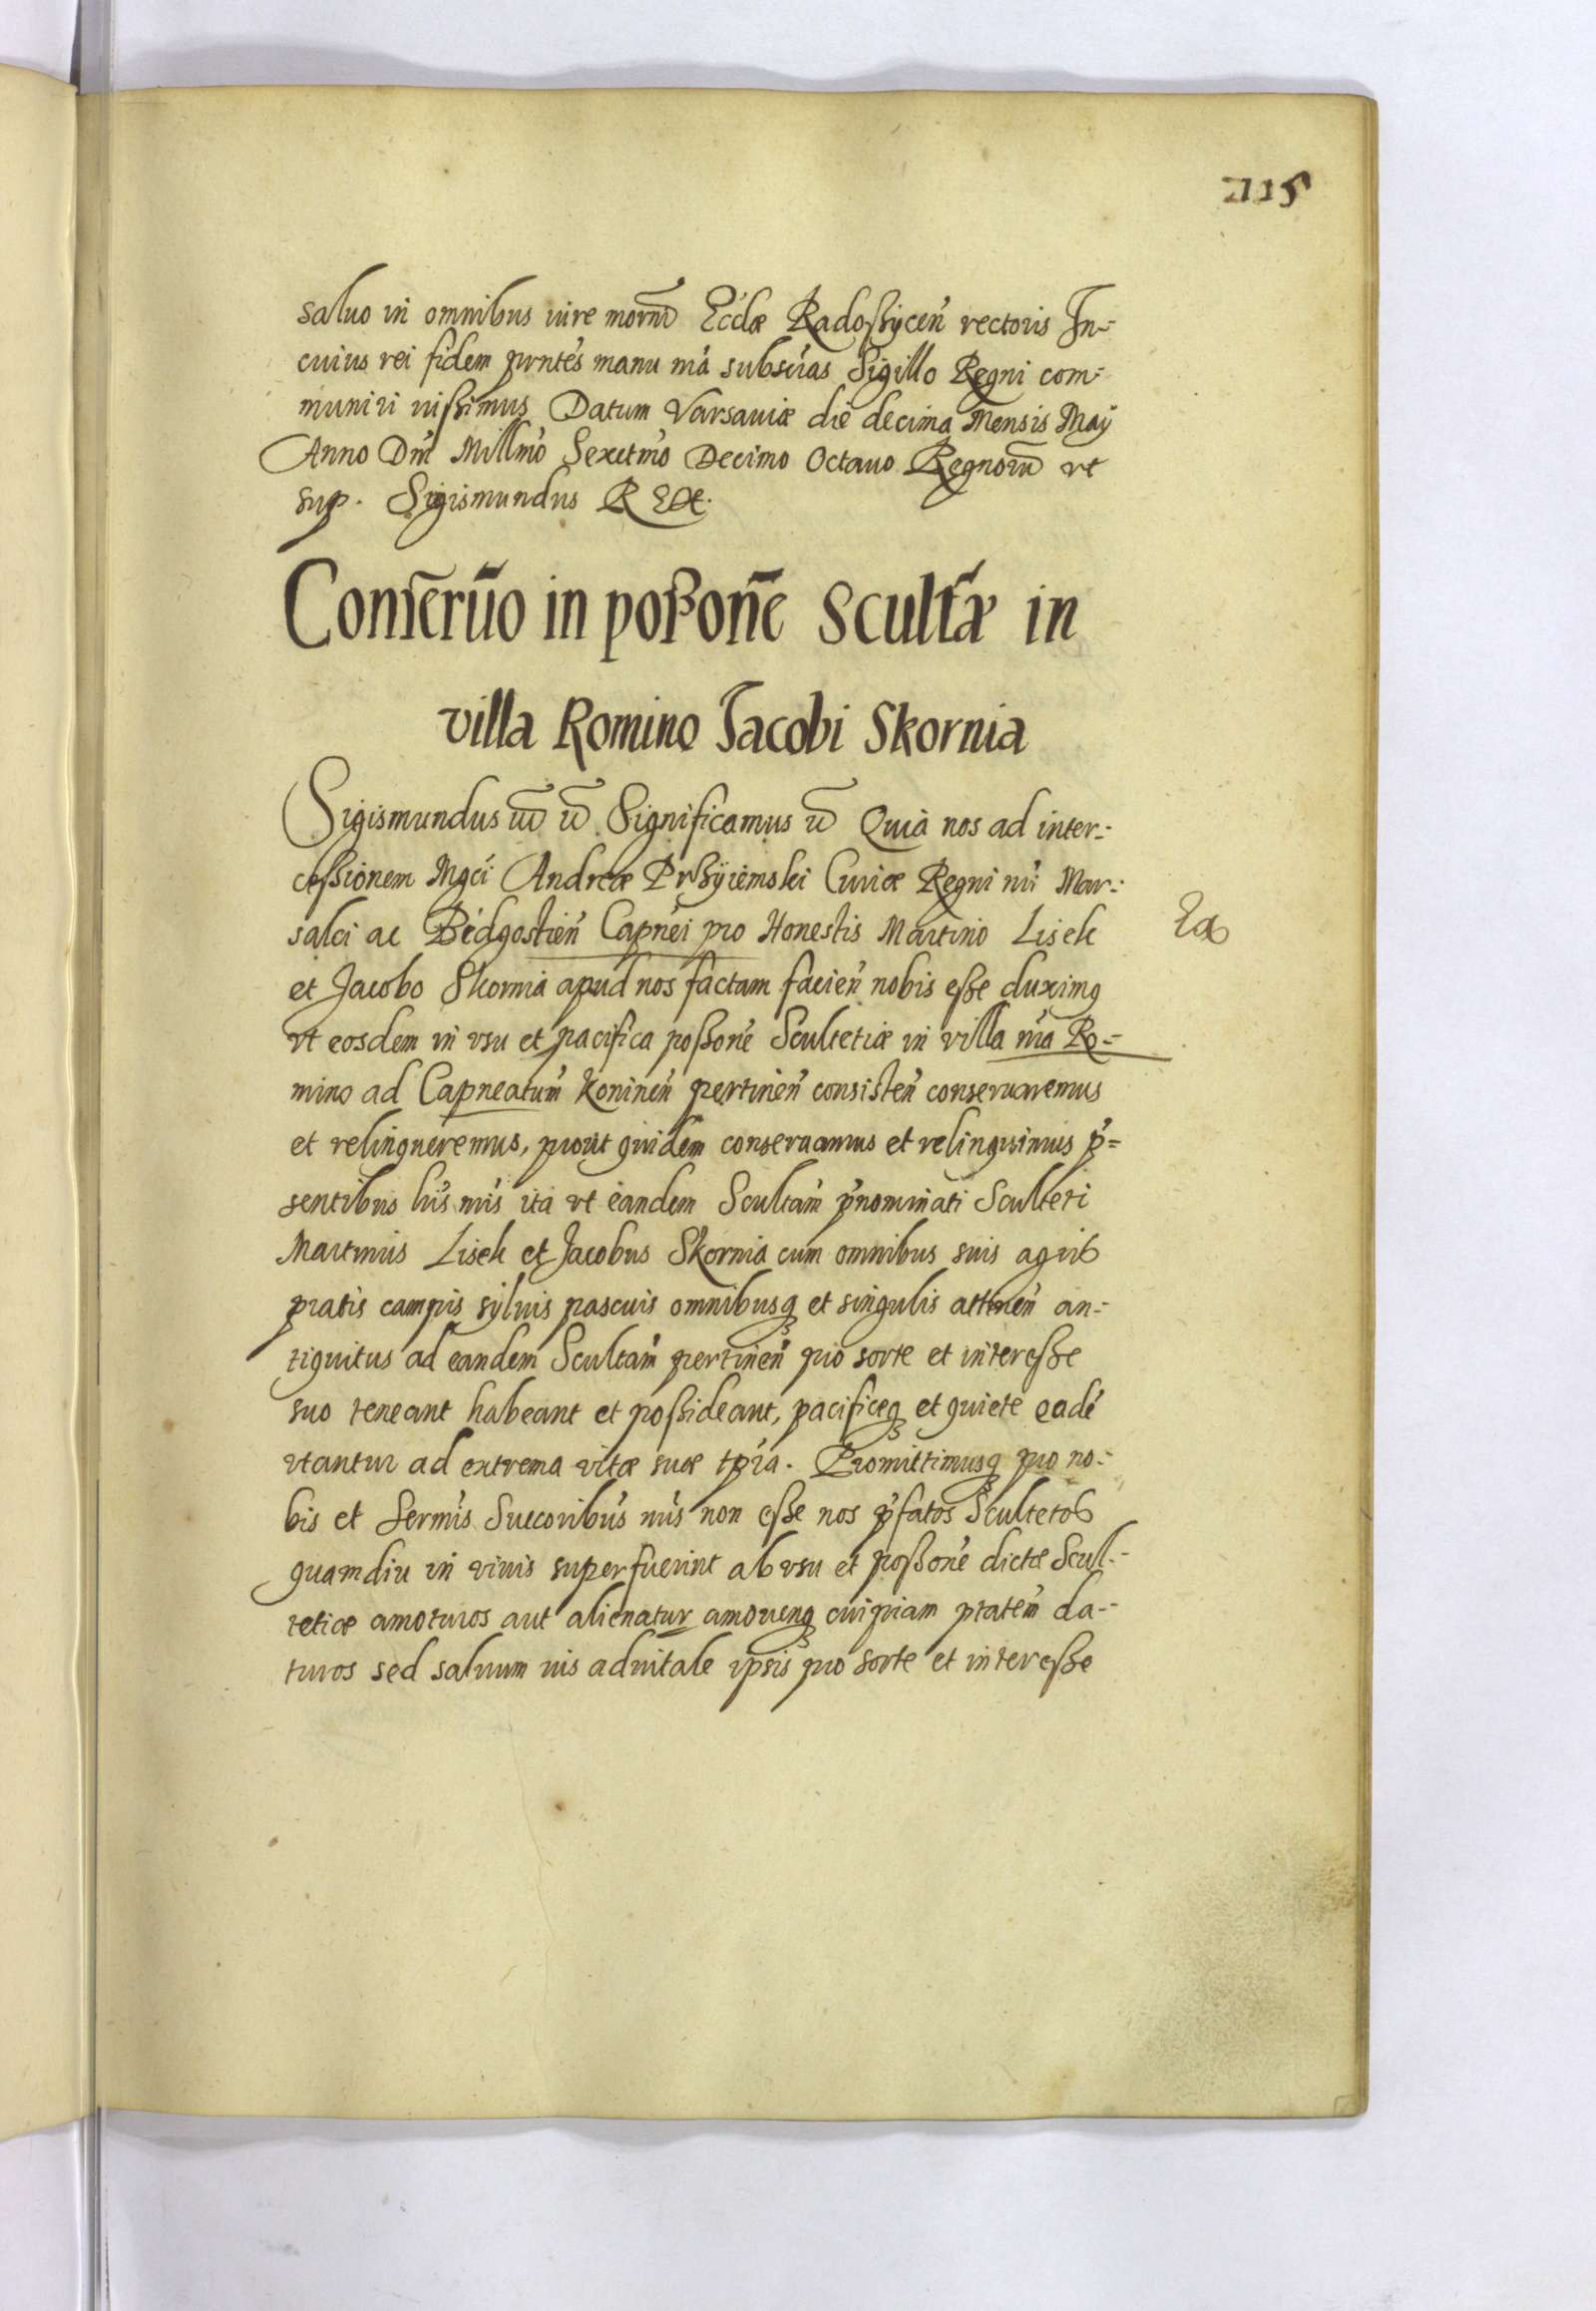 115
saluo in omnibus iure mornŭ Ecclæ Radoßycen̄ rectoris In-
cuius rei fidem prntes manu nrā subscrias Sigillo Regni com-
muniri iußimus Datum Varsauiæ die decima Mensis Maÿ
Anno Dni Millmo Sexctmo Decimo Octauo Regnorū vt
sup. Sigismundus REX.
Conseruō in poßonē Scultæ in
villa Romino Jacobi Skornia
Sigismundus Significamus Quia nos ad inter-
ceßionem Mgci Andreæ Prßyiemski Curiæ Regni nri Mar-
salci ac Bidgostien̄ Capnei pro Honestis Martino Lisek
et Jacobo Skornia apud nos factam facien̄ nobis eße duximq
vt eosdem in vsu et pacifica poßone Scultetiæ in villa nrā Ro-
mino ad Capneatum Koninen̄ pertinen̄ consisten̄ conseruaremus
et relinqueremus, prout quidem conseruamus et relinquimus p-
sentibus lris nris ita vt eandem Scultam pnominati Sculteti
Martinus Lisek et Jacobus Skornia cum omnibus suis agris
pratis campis syluis pascuis omnibusq et singulis attinen̄ an-
tiquitus ad eandem Scultam pertinen̄ pro sorte et intereße
suo teneant habeant et poßideant, pacificeq et quiete eadē
vtantur ad extrema vitæ suæ tpra. Promittimusq pro no-
bis et Sermis Succoribus nris non eße nos pfatos Scultetos
quamdiu in viuis superfuerint ab vsu et poßone dictæ Scul-
tetiæ amoturos aut alienatur amouenq cuipiam ptatem da-
turos sed saluum ius aduitale ipsis pro sorte et intereße